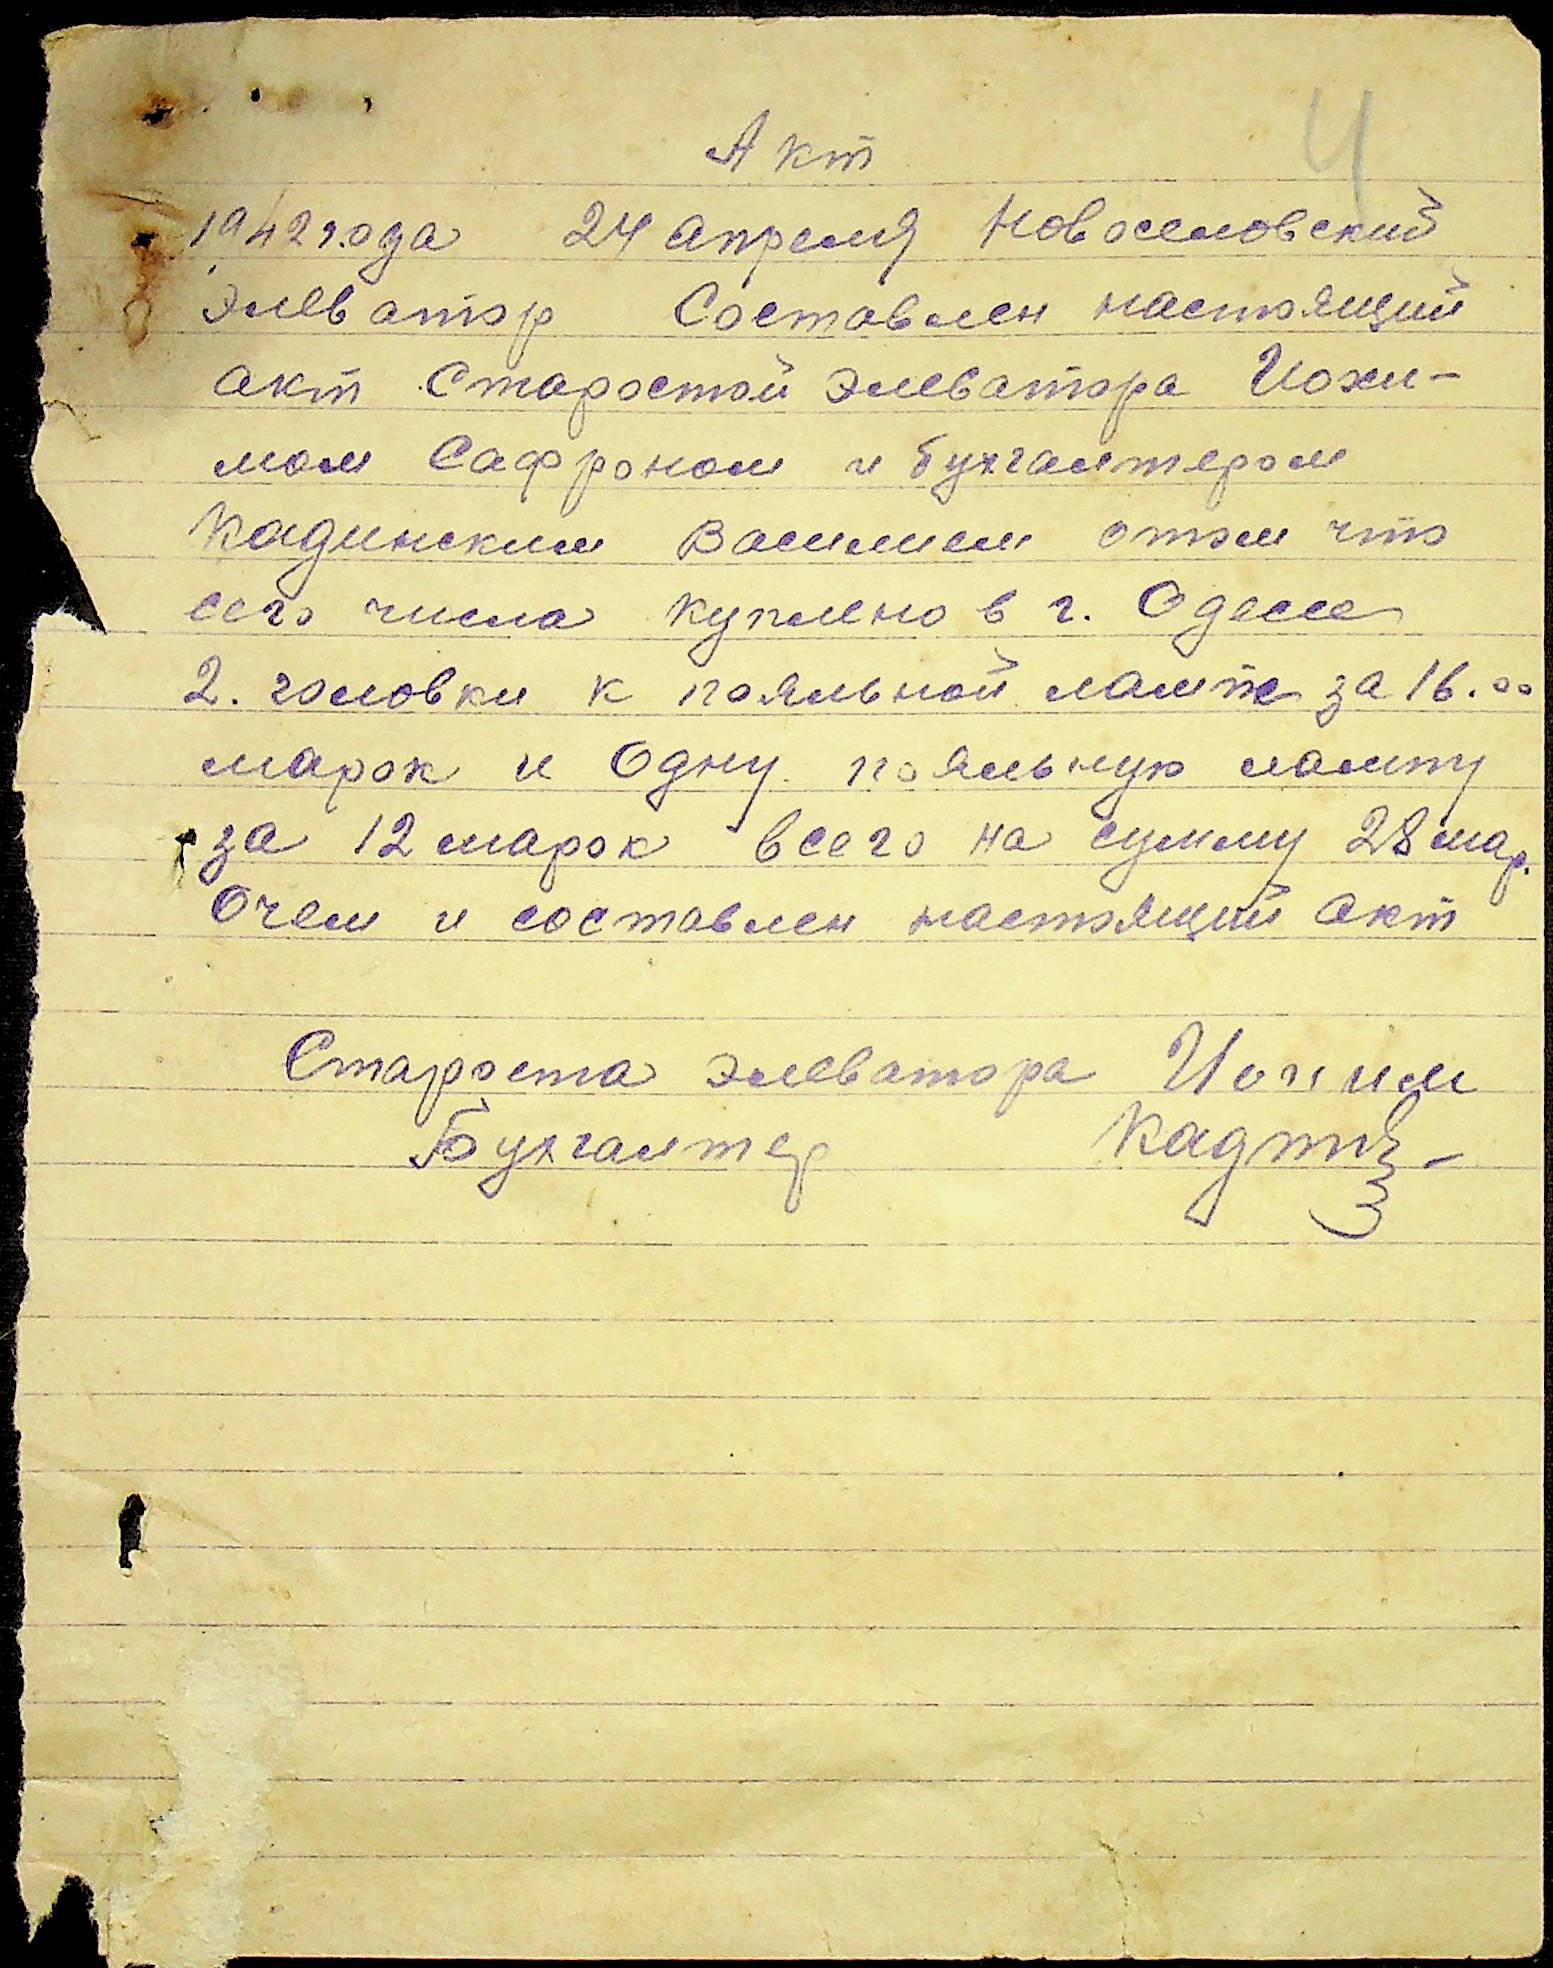 4
Акт
1942 года 24 апреля Новоселовский
элеватор Составлен настоящий
акт Старостой элеватора Иохи-
мом Сафроном и бухгалтером
Кадинским Василием отом что
сего числа куплено в г. Одессе
2. головки к паяльной лампе за 16.00
марок и Одну паяльную лампу
за 12 марок всего на сумму 28 мар.
Очем и составлен настоящий акт
Староста элеватора
Бухгалтер